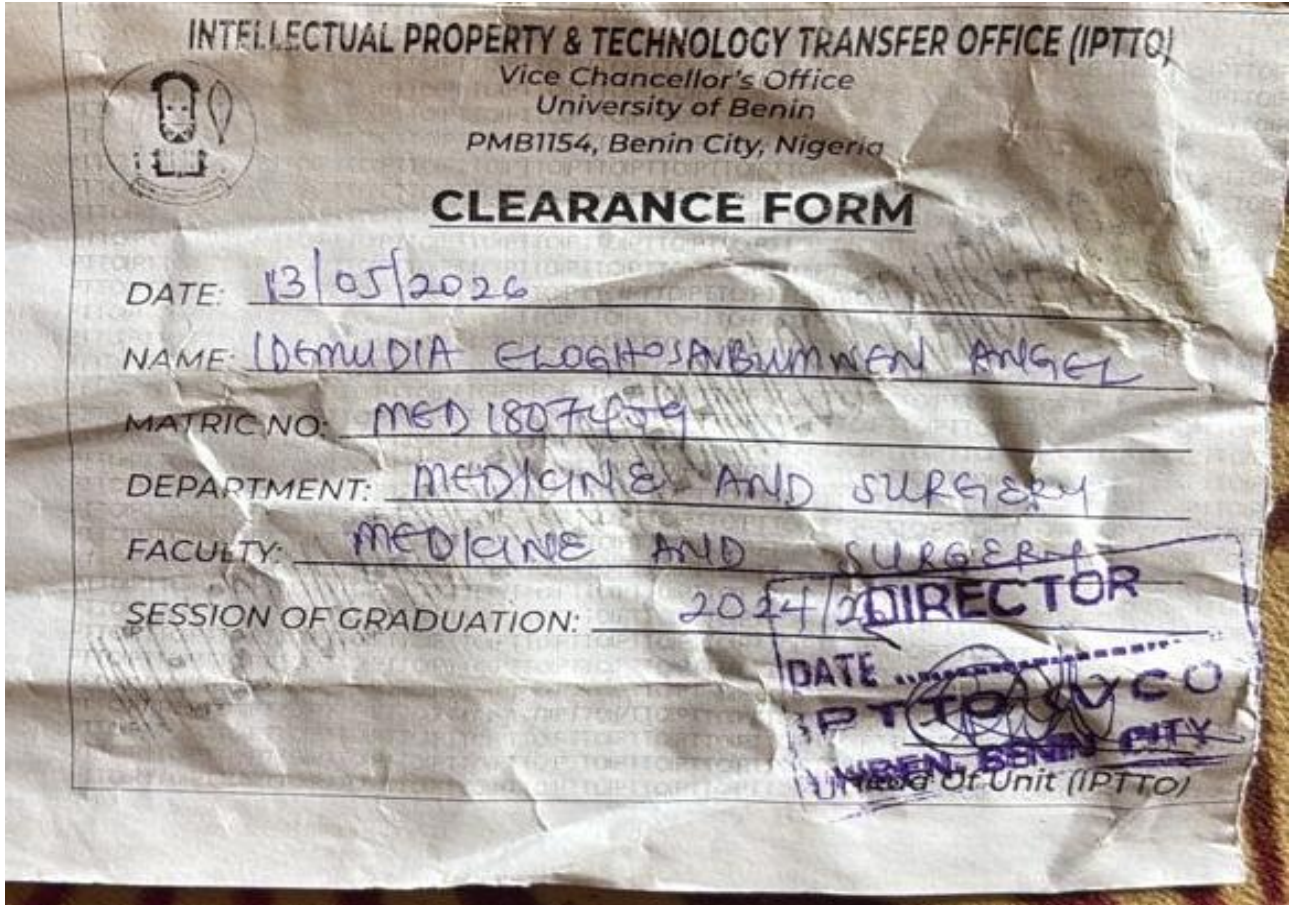 INTELLECTUAL PROPERTY & TECHNOLOGY TRANSFER OFFICE (IPTTO)
Vice Chancellor's Office
University of Benin
PMB1154, Benin City, Nigeria
CLEARANCE FORM
DATE: 13/05/2026
NAME: IDEMUDIA ELOGHOSANBUMWEN ANGEL
MATRIC NO: MED1807459
DEPARTMENT: MEDICINE AND SURGERY
FACULTY: MEDICINE AND SURGERY
SESSION OF GRADUATION: 2024/
DIRECTOR
DATE
IPTTO VCO
UNIBEN, BENIN CITY
Head Of Unit (IPTTO)